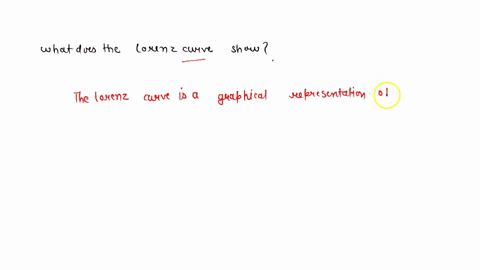 what does the lorenz curve show?
The lorenz curve is a graphical representation